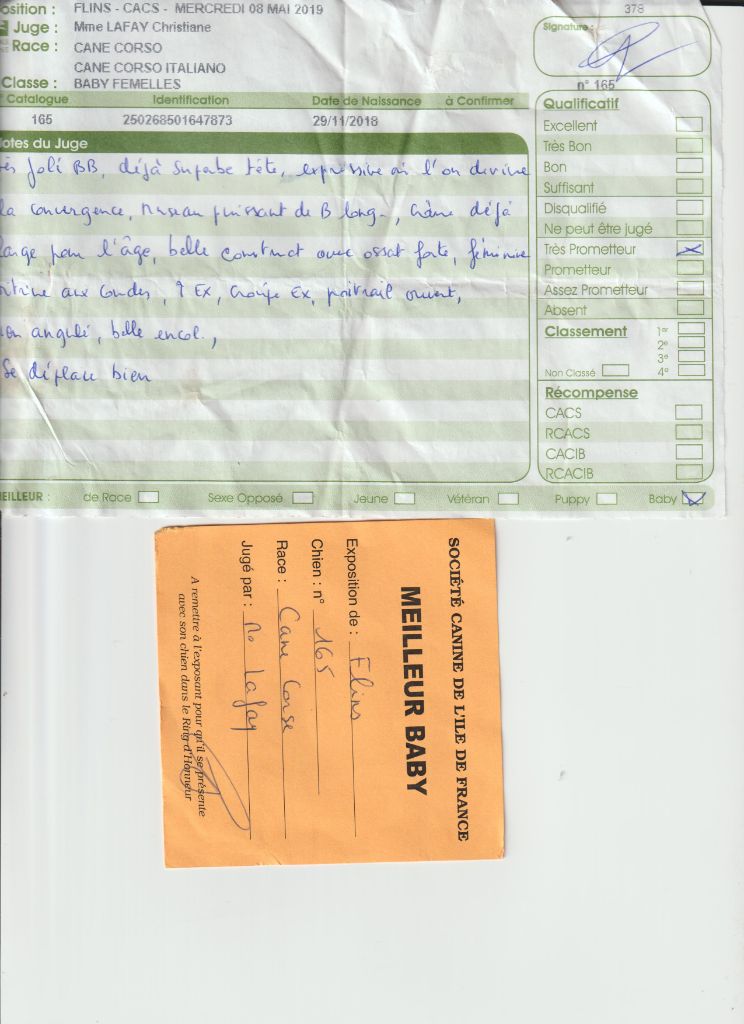 osition : FLINS - CACS - MERCREDI 08 MAI 2019
378
Juge : Mme LAFAY Christiane
Race : CANE CORSO
CANE CORSO ITALIANO
Classe : BABY FEMELLES
Signature :
n° 165
Catalogue Identification Date de Naissance à Confirmer
165 250268501647873 29/11/2018
otes du Juge
ès joli BB, déjà superbe tête, expressive où l'on devine
la convergence, museau puissant de B long., crâne déjà
large pour l'âge, belle construct avec ossat forte, féminine
oitrine aux coudes, Ex, croupe Ex, poitrail ouvert,
on angulé, belle encol.,
Se déplace bien
Qualificatif
Excellent
Très Bon
Bon
Suffisant
Disqualifié
Ne peut être jugé
Très Prometteur
Prometteur
Assez Prometteur
Absent
Classement 1er
2e
3e
Non Classé 4e
Récompense
CACS
RCACS
CACIB
RCACIB
EILLEUR : de Race Sexe Opposé Jeune Vétéran Puppy Baby
SOCIÉTÉ CANINE DE L'ILE DE FRANCE
MEILLEUR BABY
Exposition de : Flins
Chien : n° 165
Race : Cane Corse
Jugé par : Lafay
A remettre à l'exposant pour qu'il se présente
avec son chien dans le Ring d'Honneur